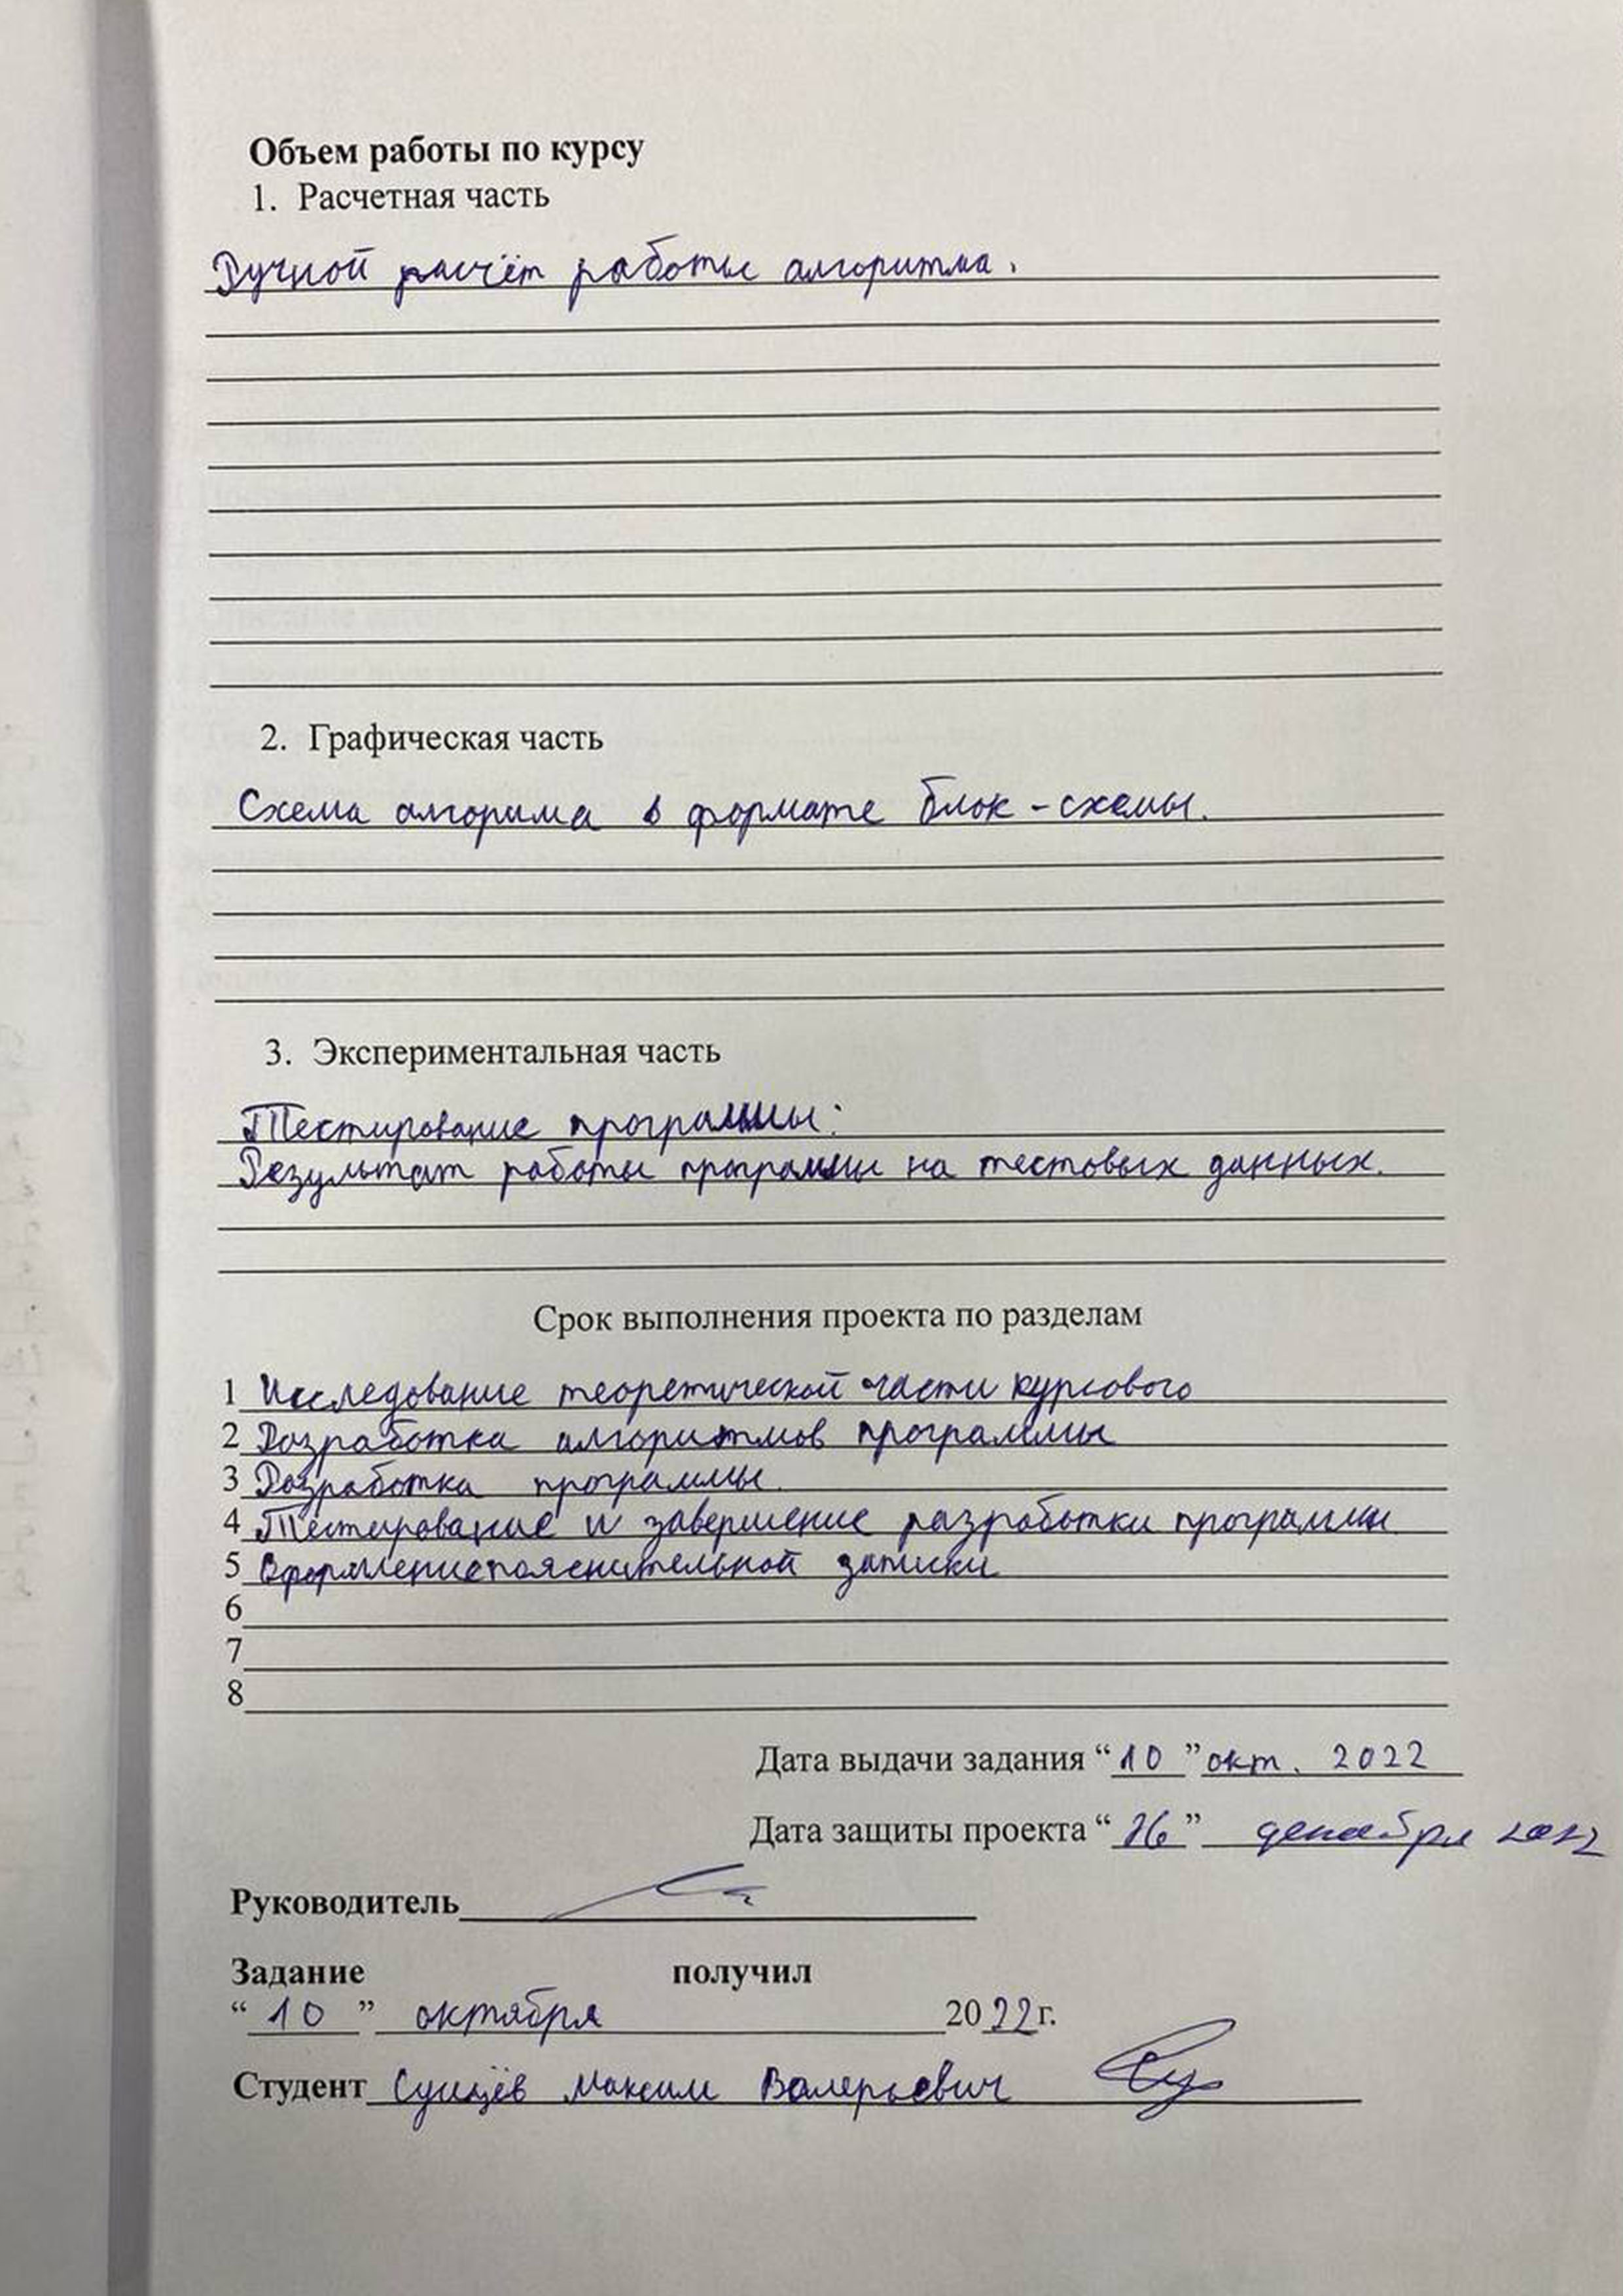 Объем работы по курсу
1. Расчетная часть
Ручной расчёт работы алгоритма.
2. Графическая часть
Схема алгорима в формате блок-схемы.
3. Экспериментальная часть
Тестирование программы:
Результат работы программы на тестовых данных.
Срок выполнения проекта по разделам
1 Исследование теоретической части курсового
2 Разработка алгоритмов программы
3 Разработка программы.
4 Тестирование и завершение разработки программы
5 Оформление пояснительной записки
6
7
8
Дата выдачи задания “10” окт. 2022
Дата защиты проекта “ ” декабря 2022
Руководитель
Задание получил
“10” октября 2022г.
Студент Сущёв Максим Валерьевич